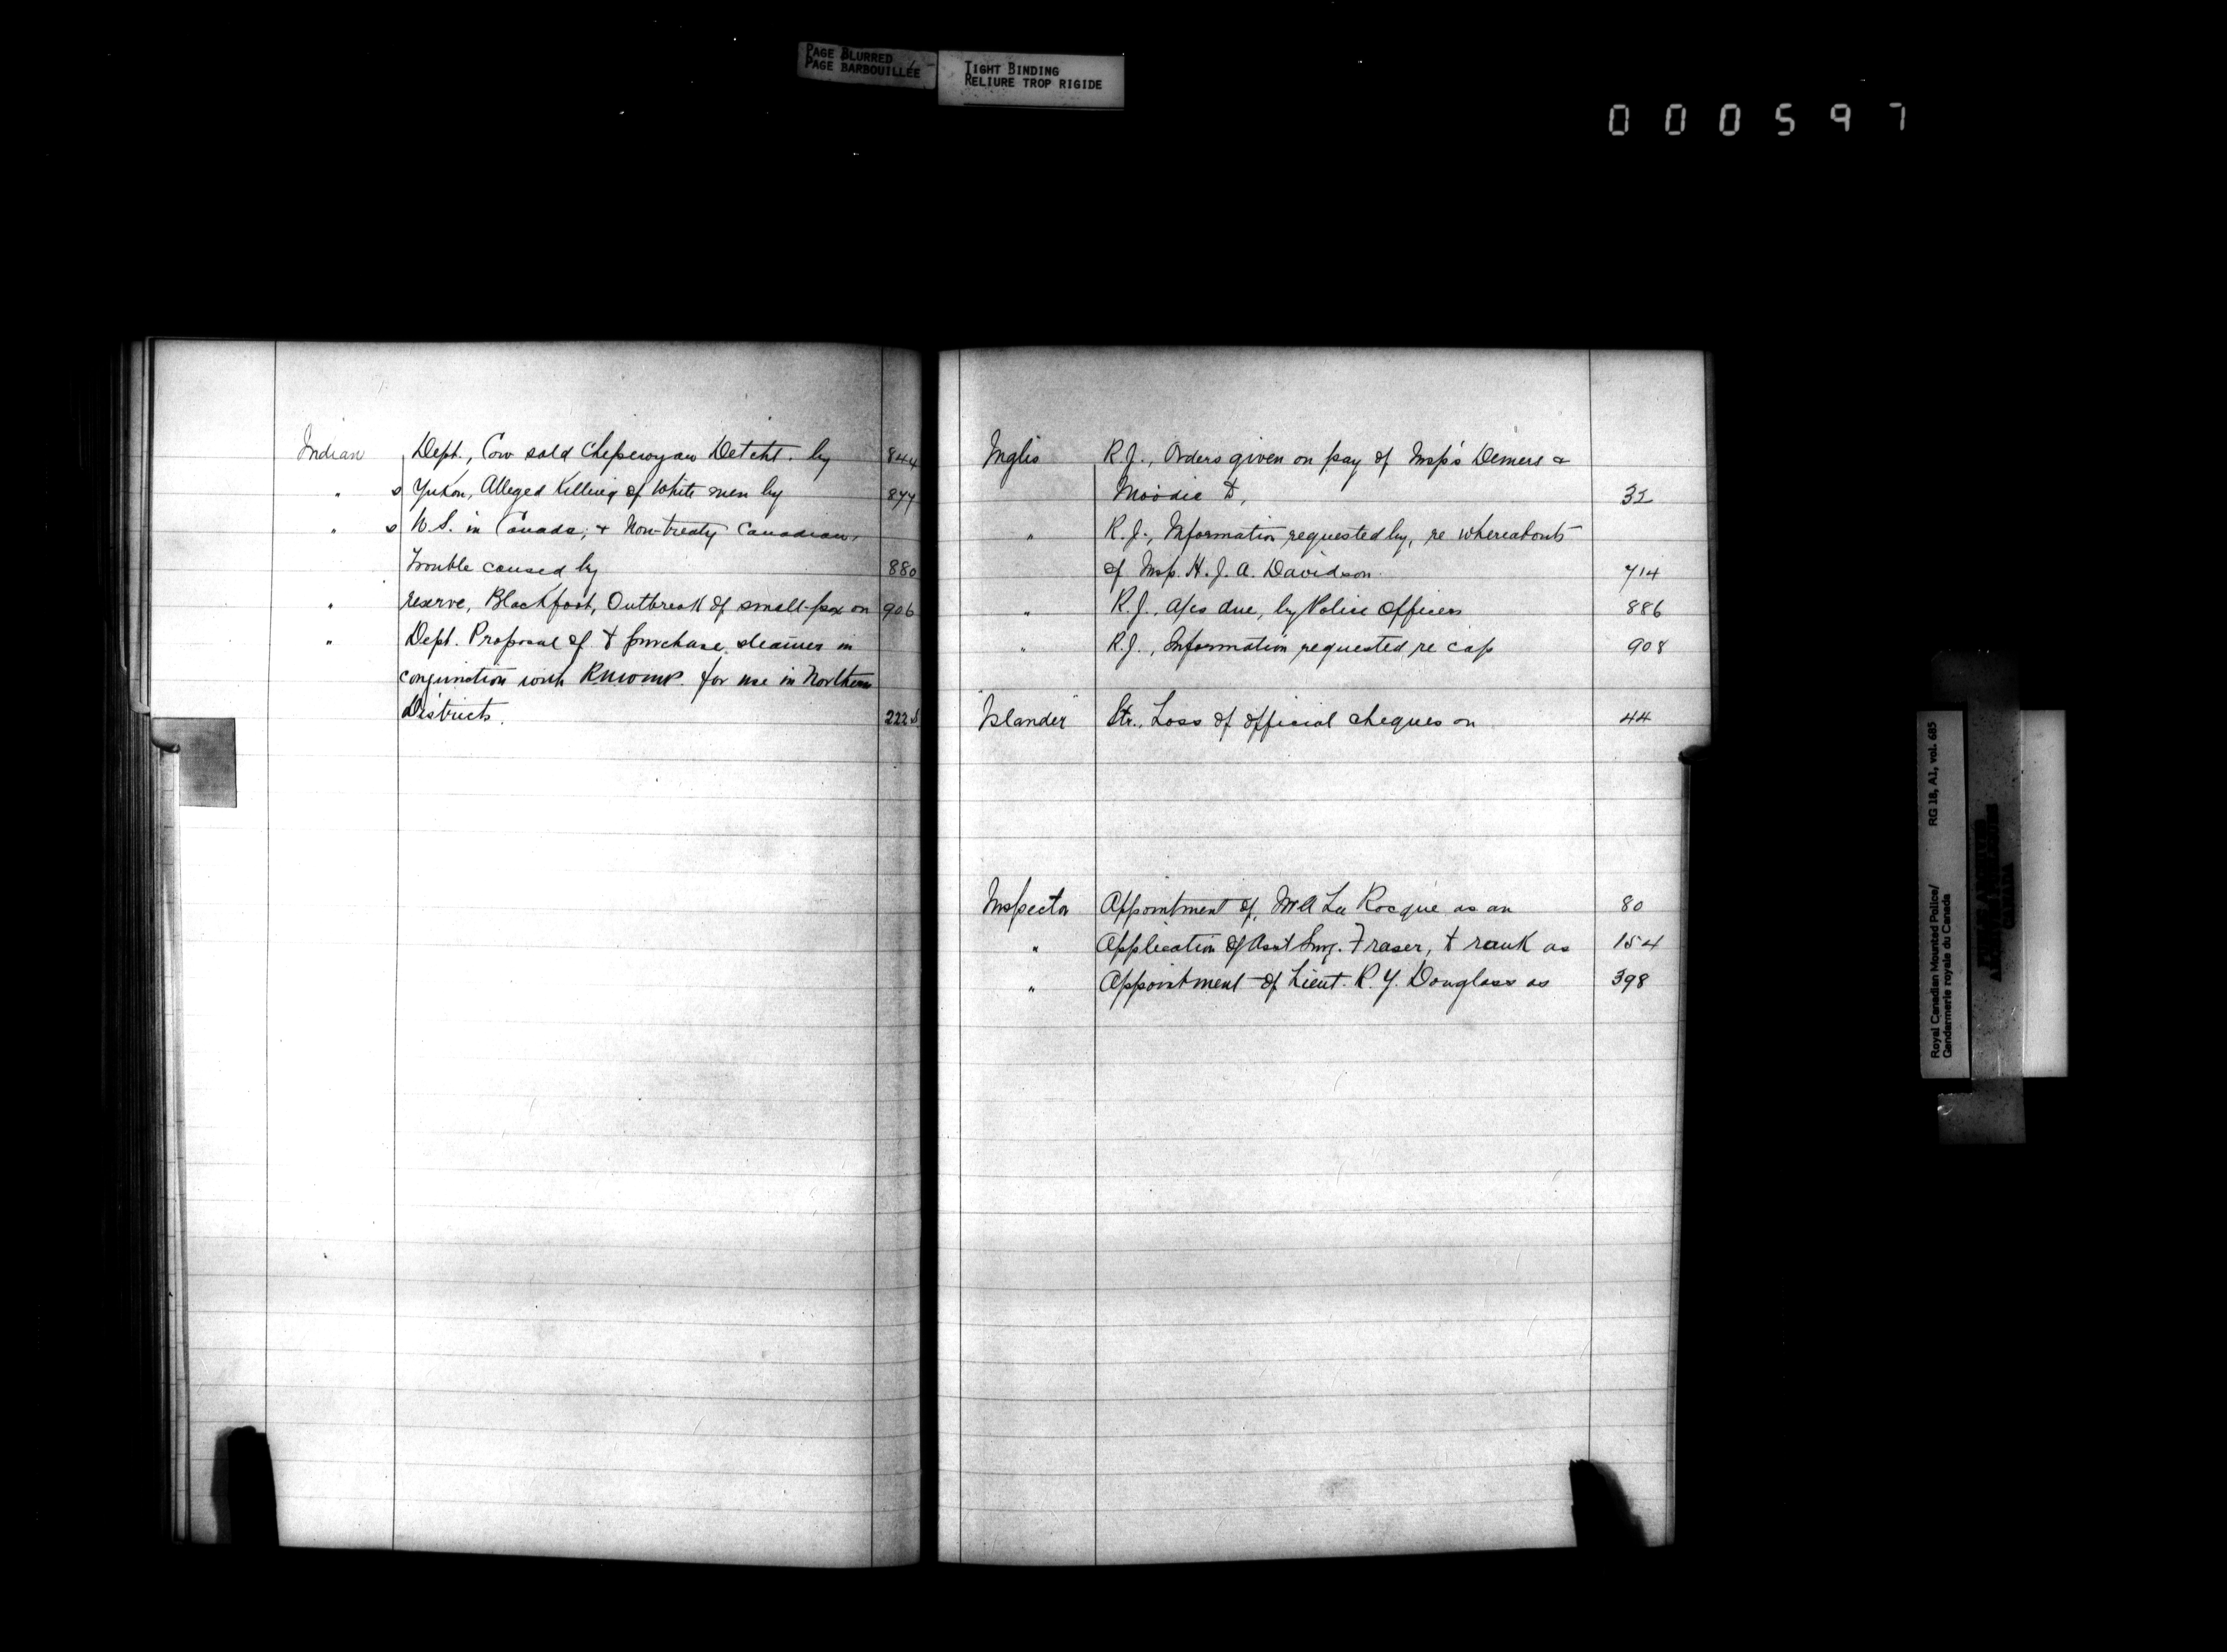 PAGE BLURRED
PAGE BARBOUILLÉE
TIGHT BINDING
RELIURE TROP RIGIDE
000597
Indian Dept., Cow sold Chipewyan Detcht. by 844
" s Yukon, Alleged Killing of White men by 877
" s U.S. in Canada, + Non-treaty Canadian,
trouble caused by 880
" reserve, Blackfoot, Outbreak of small-pox on 906
" Dept. Proposal of to purchase steamer in
conjunction with RNWMP. for use in Northern
Districts. 222
Inglis R.J., Orders given on pay of Insp's Demers &
Moodie to, 32
" R.J., Information requested by, re whereabouts
of Insp. H.J.A. Davidson. 714
" R.J., a/cs due, by Police Officers 886
" R.J., Information requested re cap 908
"Islander" Str., Loss of official cheques on 44
Inspector Appointment of, Mr A La Rocque as an 80
" Application of Asst Surg. Fraser, to rank as 154
" Appointment of Lieut. R.Y. Douglass as 398
Royal Canadian Mounted Police/ RG 18, A1, vol. 685
Gendarmerie royale du Canada
CANADA